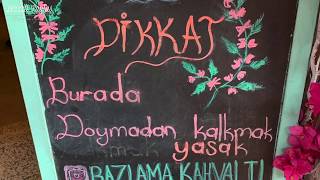 DİKKAT
Burada
Doymadan kalkmak
yasak
BAZLAMA KAHVALTI